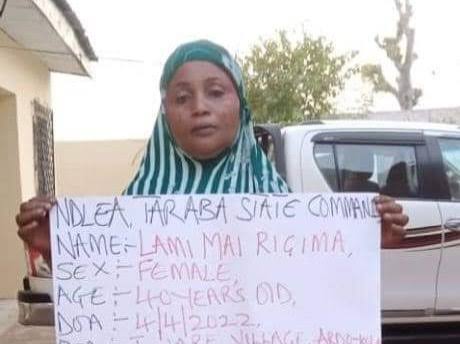 NDLEA, TARABA STATE COMMAND
NAME:- LAMI MAI RIGIMA,
SEX:- FEMALE,
AGE:- 40 YEAR'S OLD,
DOA:- 4/4/2022,
VILLAGE,